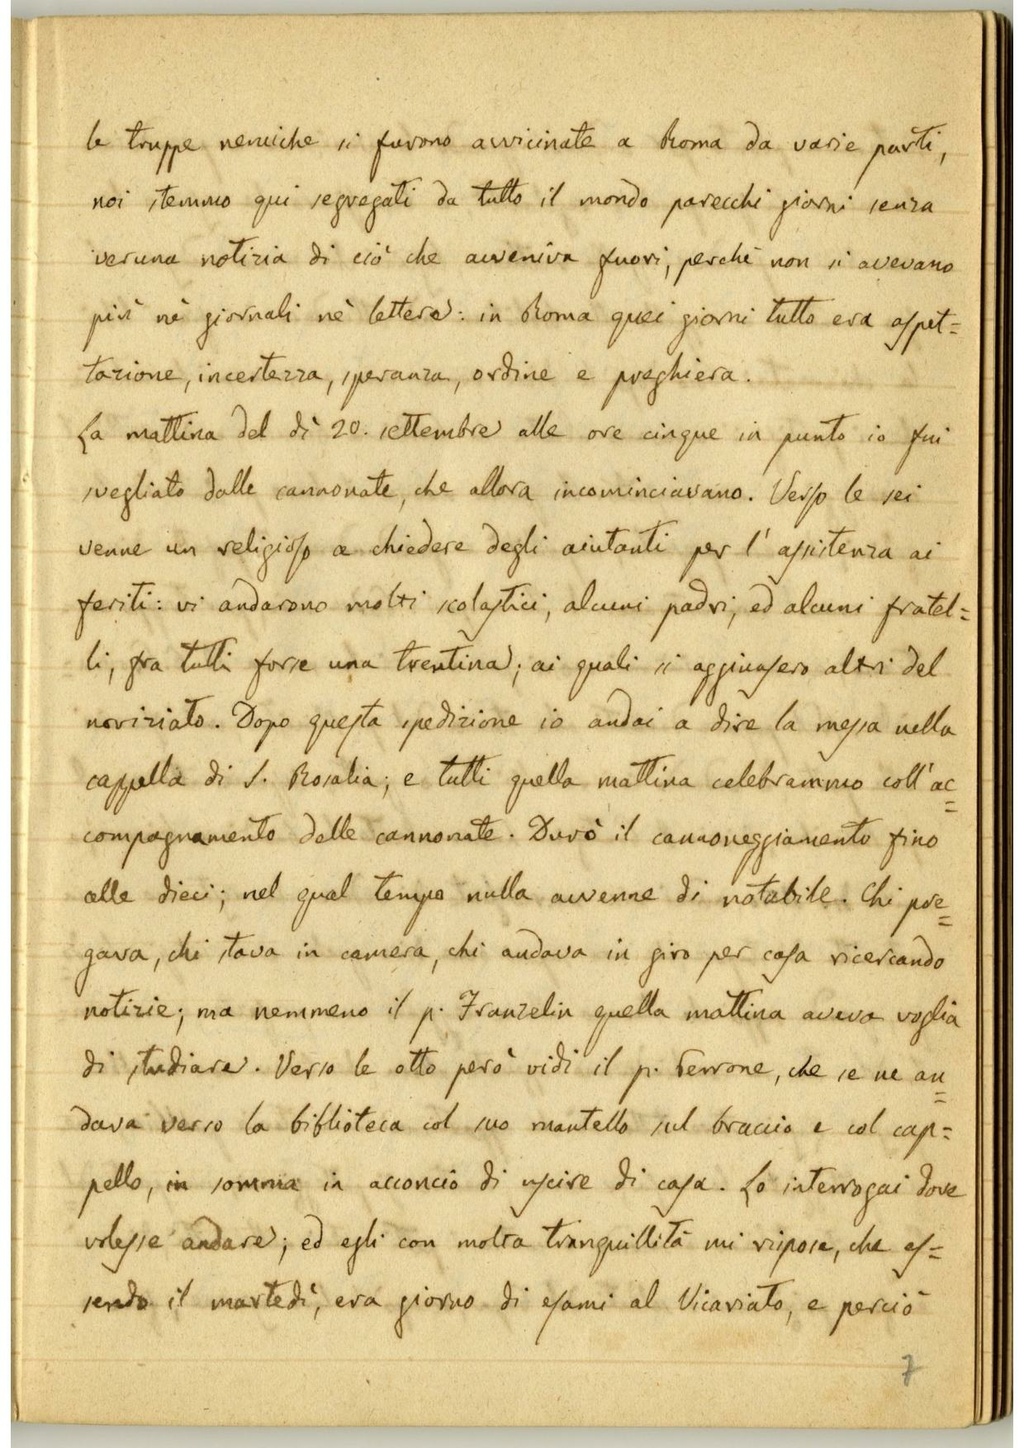 le truppe nemiche si furono avvicinate a Roma da varie parti,
noi stemmo qui segregati da tutto il mondo parecchi giorni senza
veruna notizia di ciò che avveniva fuori, perchè non si avevano
più nè giornali nè lettere: in Roma quei giorni tutto era aspet=
tazione, incertezza, speranza, ordine e preghiera.
La mattina del dì 20. settembre alle ore cinque in punto io fui
svegliato dalle cannonate, che allora incominciavano. Verso le sei
venne un religioso a chiedere degli aiutanti per l'assistenza ai
feriti: vi andarono molti scolastici, alcuni padri, ed alcuni fratel=
li, fra tutti forse una trentina; ai quali si aggiunsero altri del
noviziato. Dopo questa spedizione io andai a dire la messa nella
cappella di S. Rosalia; e tutti quella mattina celebrammo coll'ac=
compagnamento delle cannonate. Durò il cannoneggiamento fino
alle dieci; nel qual tempo nulla avvenne di notabile. Chi pre=
gava, chi stava in camera, chi andava in giro per casa ricercando
notizie; ma nemmeno il p. Franzelin quella mattina aveva voglia
di studiare. Verso le otto però vidi il p. Perrone, che se ne an=
dava verso la biblioteca col suo mantello sul braccio e col cap=
pello, in somma in acconcio di uscire di casa. Lo interrogai dove
volesse andare; ed egli con molta tranquillità mi rispose, che es=
sendo il martedì, era giorno di esami al Vicariato, e perciò
7